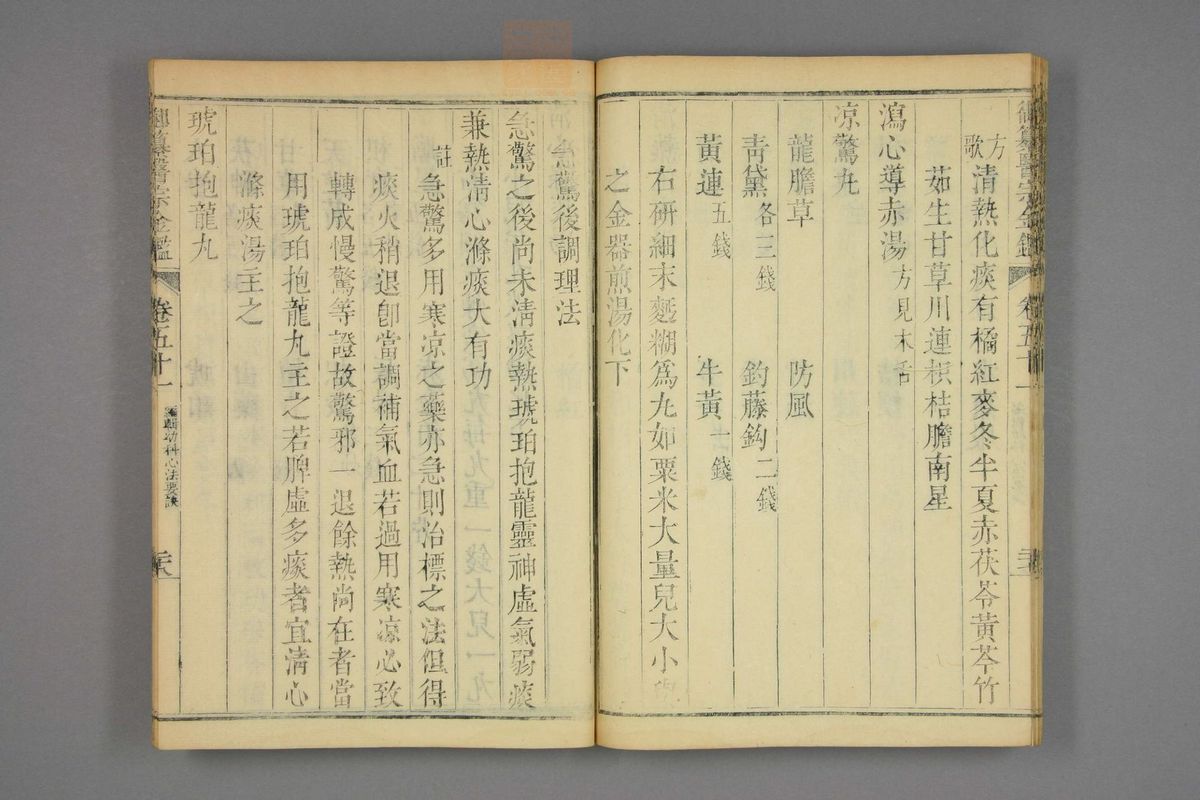 御纂醫宗金鑑
卷五十一
方歌 清熱化痰有橘紅麥冬半夏赤茯苓黃芩竹
茹生甘草川連枳桔膽南星
瀉心導赤湯 方見木舌
凉驚丸
龍膽草 防風
青黛各三錢 鈎藤鈎二錢
黃連五錢 牛黃一錢
右研細末麪糊爲丸如粟米大量兒大小
之金器煎湯化下
急驚後調理法
急驚之後尚未清痰熱琥珀抱龍靈神虛氣弱痰
兼熱清心滌痰大有功
註 急驚多用寒凉之藥亦急則治標之法但得
痰火稍退卽當調補氣血若過用寒凉必致
轉成慢驚等證故驚邪一退餘熱尚在者當
用琥珀抱龍丸主之若脾虛多痰者宜清心
滌痰湯主之
琥珀抱龍丸
御纂醫宗金鑑
卷五十一
編輯幼科心法要訣
二八